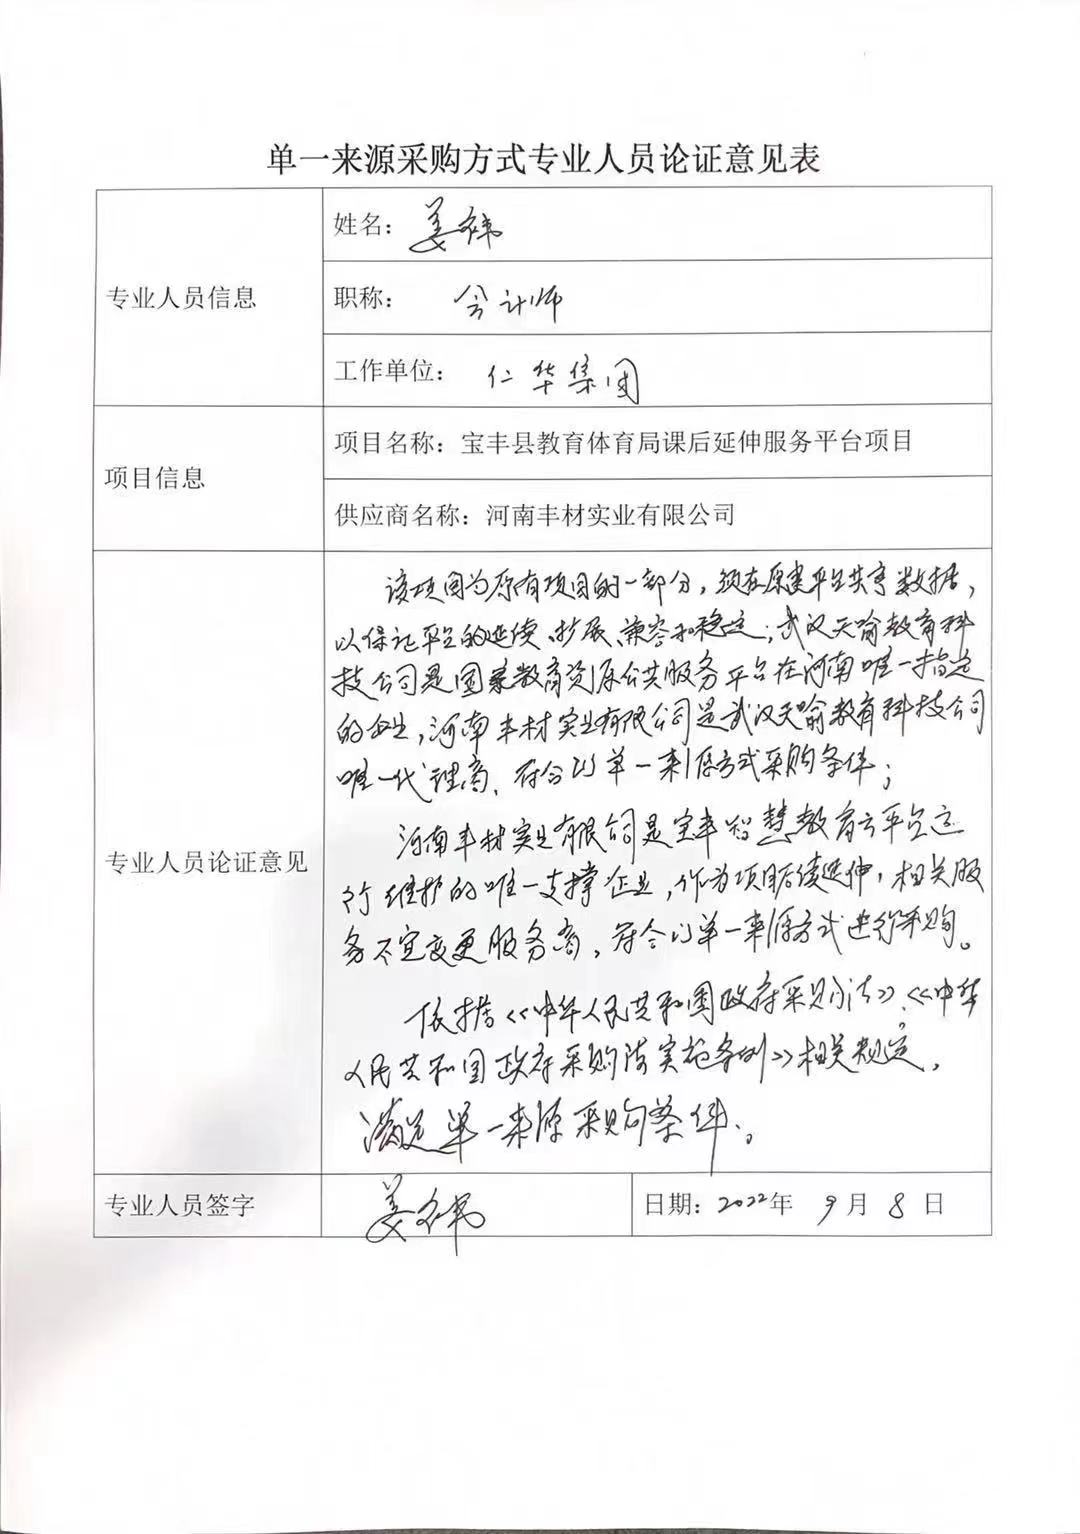 单一来源采购方式专业人员论证意见表
专业人员信息
姓名：姜祎
职称：会计师
工作单位：仁华集团
项目信息
项目名称：宝丰县教育体育局课后延伸服务平台项目
供应商名称：河南丰材实业有限公司
专业人员论证意见
该项目为原有项目的一部分，须在原建平台共享数据，
以保证平台的延续、扩展、兼容和稳定；武汉天喻教育科
技公司是国家教育资源公共服务平台在河南唯一指定
的企业，河南丰材实业有限公司是武汉天喻教育科技公司
唯一代理商、符合以单一来源方式采购条件；
河南丰材实业有限公司是宝丰智慧教育云平台运
行维护的唯一支撑企业，作为项目后续延伸，相关服
务不宜变更服务商，符合以单一来源方式进行采购。
依据《中华人民共和国政府采购法》、《中华
人民共和国政府采购法实施条例》相关规定，
满足单一来源采购条件。
专业人员签字
姜祎
日期：2022年 9月 8日